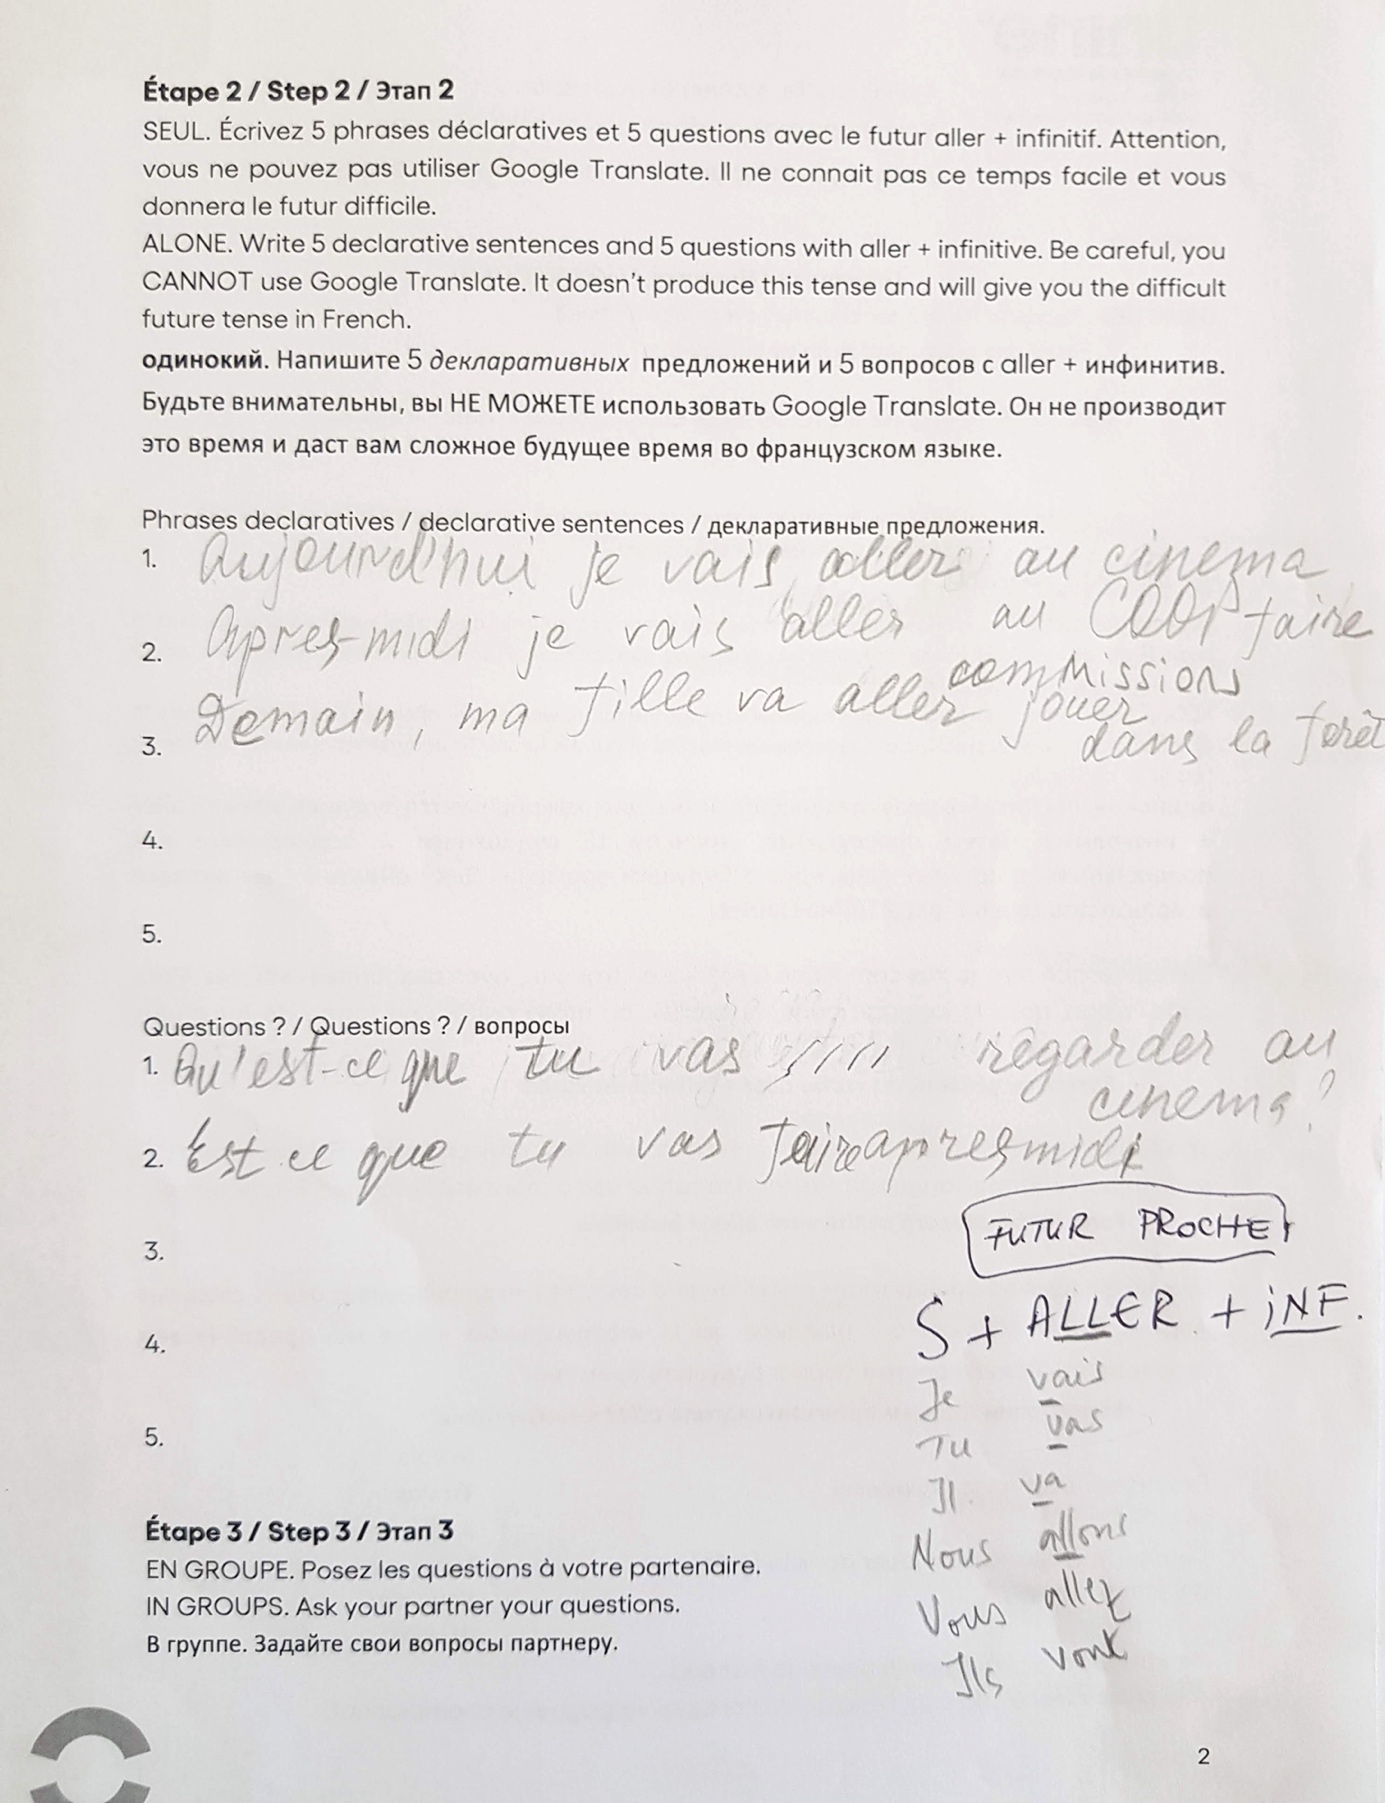 Étape 2 / Step 2 / Этап 2
SEUL. Écrivez 5 phrases déclaratives et 5 questions avec le futur aller + infinitif. Attention,
vous ne pouvez pas utiliser Google Translate. Il ne connait pas ce temps facile et vous
donnera le futur difficile.
ALONE. Write 5 declarative sentences and 5 questions with aller + infinitive. Be careful, you
CANNOT use Google Translate. It doesn't produce this tense and will give you the difficult
future tense in French.
одинокий. Напишите 5 декларативных предложений и 5 вопросов с aller + инфинитив.
Будьте внимательны, вы НЕ МОЖЕТЕ использовать Google Translate. Он не производит
это время и даст вам сложное будущее время во французском языке.
Phrases declaratives / declarative sentences / декларативные предложения.
1. Aujourd'hui je vais aller au cinema
2. Apres-midi je vais aller au COOP faire
commissions
3. Demain, ma fille va aller jouer
dans la forêt
4.
5.
Questions ? / Questions ? / вопросы
1. Qu'est-ce que tu vas regarder au
cinema?
2. Est ce que tu vas faire apresmidi
3.
4.
5.
FUTUR PROCHE
S + ALLER + INF.
Je vais
Tu vas
Il va
Nous allons
Vous allez
Ils vont
Étape 3 / Step 3 / Этап 3
EN GROUPE. Posez les questions à votre partenaire.
IN GROUPS. Ask your partner your questions.
В группе. Задайте свои вопросы партнеру.
2